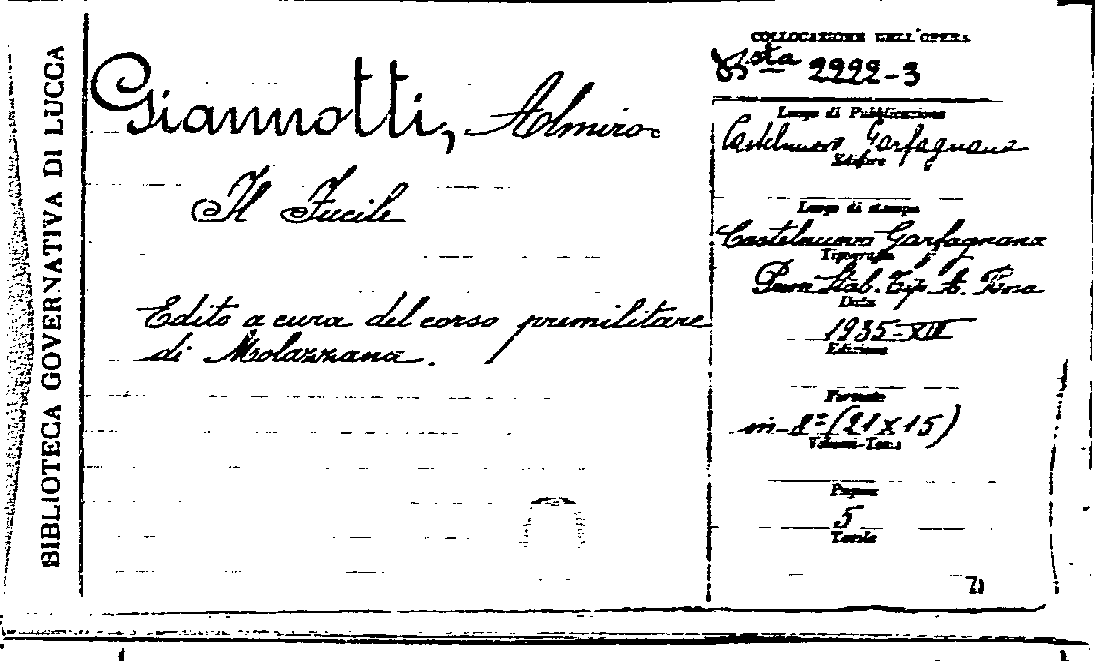 BIBLIOTECA GOVERNATIVA DI LUCCA
Giannotti, Almiro
Il Fucile
Edito a cura del corso premilitare
di Molazzana.
COLLOCAZIONE DELL'OPERA
Bsta 2222-3
Luogo di Pubblicazione
Castelnuovo Garfagnana
Editore
Luogo di stampa
Castelnuovo Garfagnana
Tipografia
Stab. Tip. A. Rosa
Data
1935-XIII
Edizione
Formato
in-8° (21x15)
Volumi-Tomi
Pagine
5
Tavole